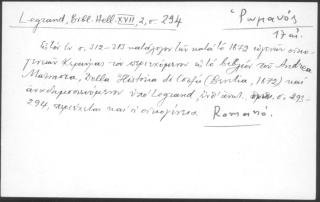 Legrand, Bibl. Hell. XVII, 2, σ. 294
Ῥωμανός
17 αἰ.
Εἰς τὸν ἐν σ. 312-313 κατάλογον τῶν κατὰ τὸ 1672 εὐγενῶν οἰκο-
γενειῶν Κερκύρας τὸν περιεχόμενον εἰς τὸ βιβλίον τοῦ Andrea
Marmora, Della Historia di Corfù (Venetia, 1672) καὶ
ἀναδημοσιευόμενον ὑπὸ Legrand, ἔνθ' ἀνωτ. σ. 293-
294, περιέχεται καὶ ἡ οἰκογένεια Romanò.